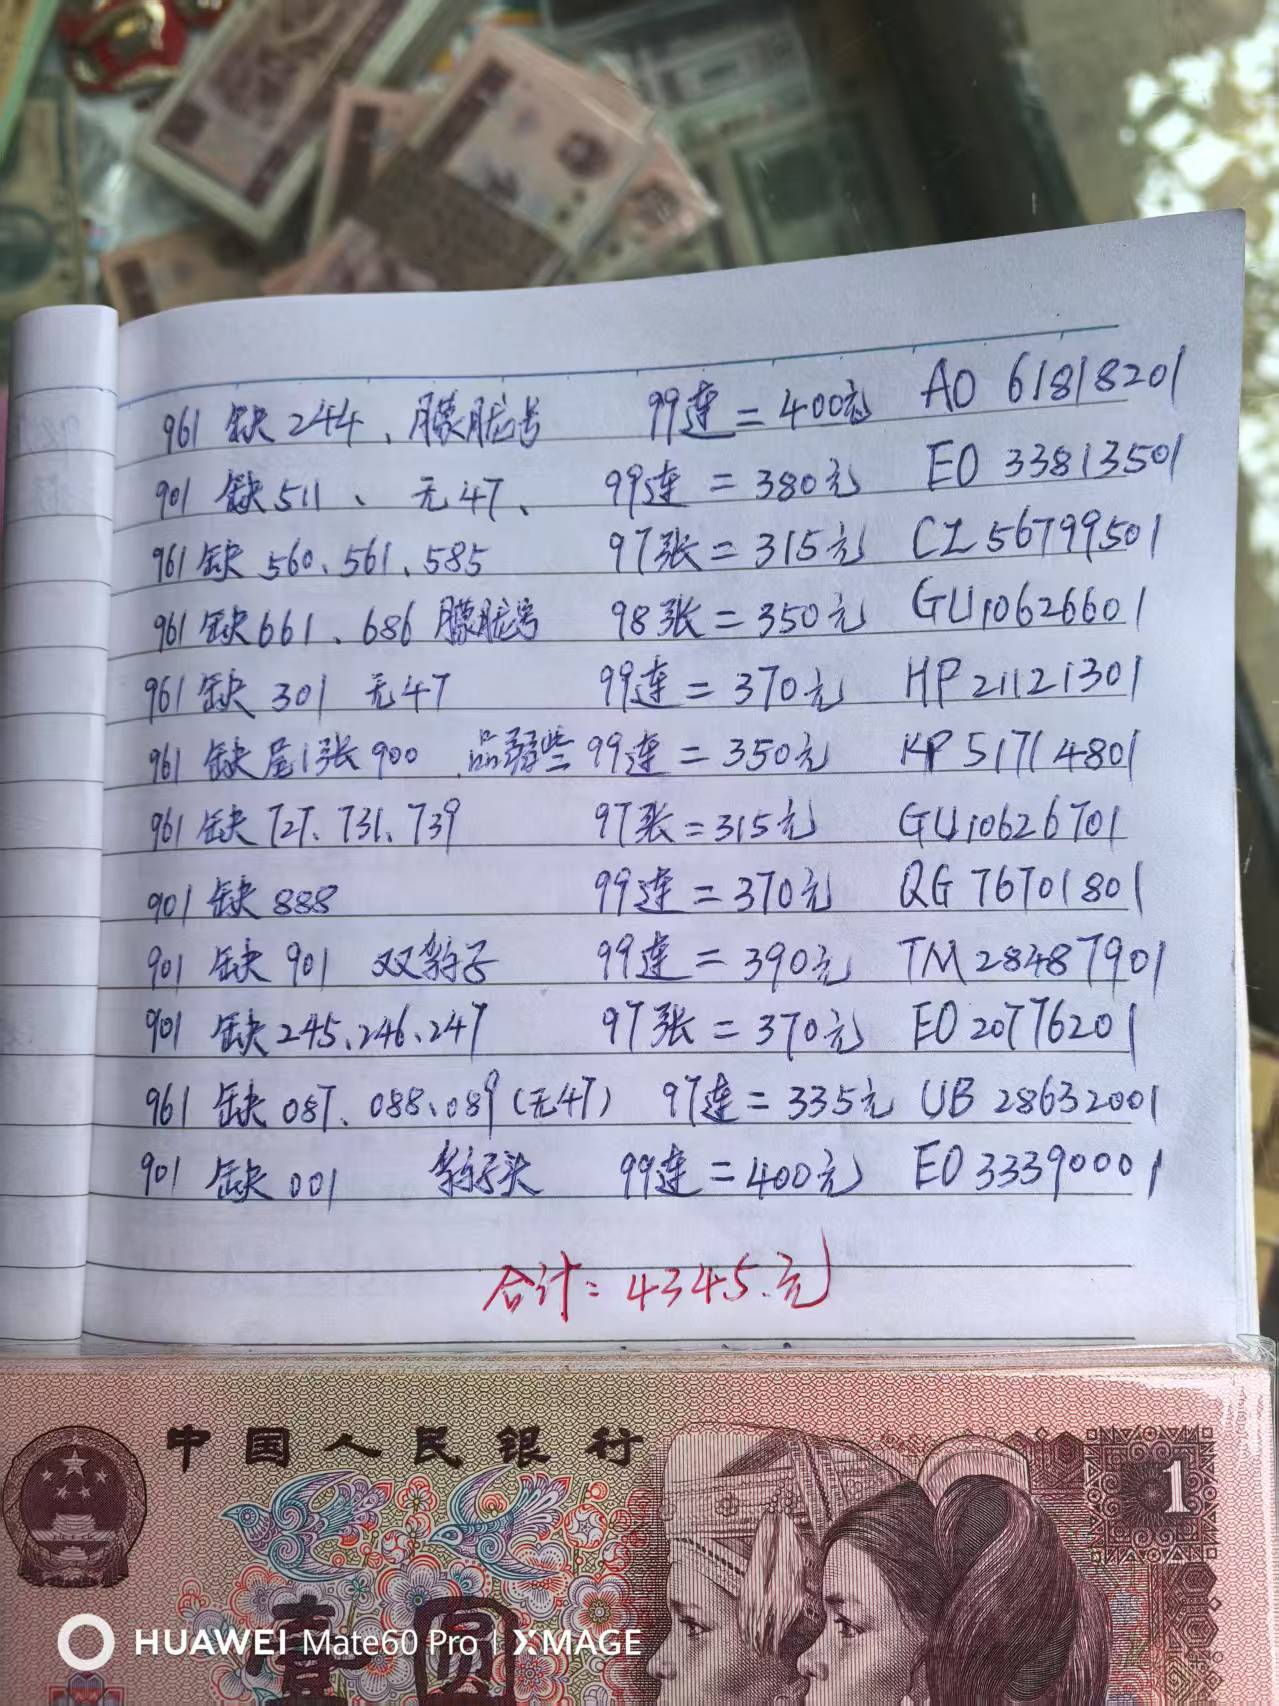 961 缺244、朦胧号 99连=400元 AO 61818201
901 缺511、无47、 99连=380元 EO 33813501
961 缺560、561、585 97张=315元 CZ 56799501
961 缺661、686 朦胧号 98张=350元 GU10626601
961 缺301 无47 99连=370元 HP 21121301
961 缺尾1张900 品弱些 99连=350元 KP 51714801
961 缺727、731、739 97张=315元 GU10626701
901 缺888 99连=370元 QG 76701801
901 缺901 双豹子 99连=390元 TM 28487901
901 缺245、246、247 97张=370元 EO 20776201
961 缺087、088、089(无47) 97连=335元 UB 28632001
901 缺001 豹子头 99连=400元 EO 33390001
合计:4345.元
中国人民银行
1
壹圆
HUAWEI Mate60 Pro | XMAGE